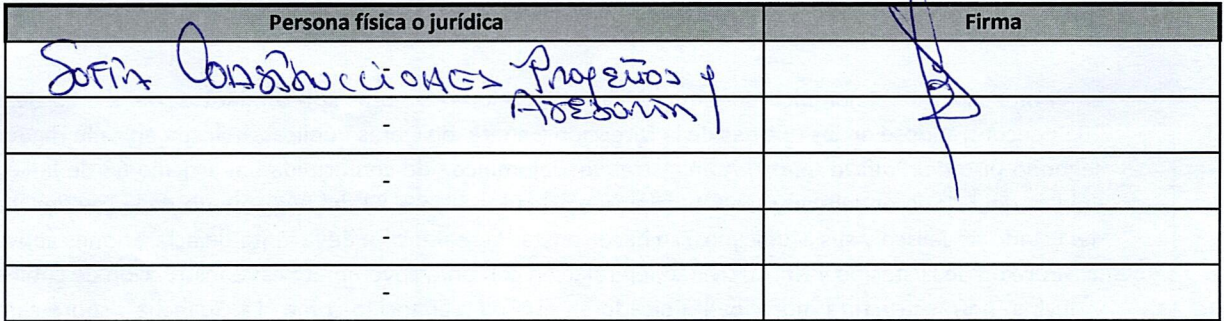 Persona física o jurídica Firma
Sofía Construcciones Proyectos y
Asesoria
-
-
-
-